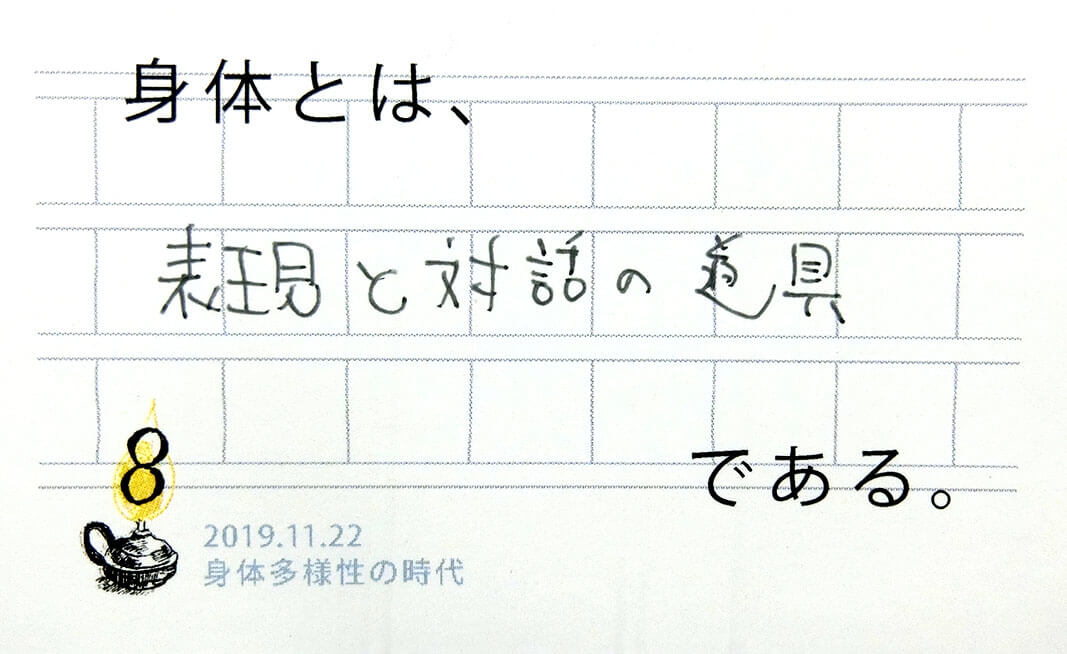 身体とは、
表現と対話の道具
である。
8
2019.11.22
身体多様性の時代